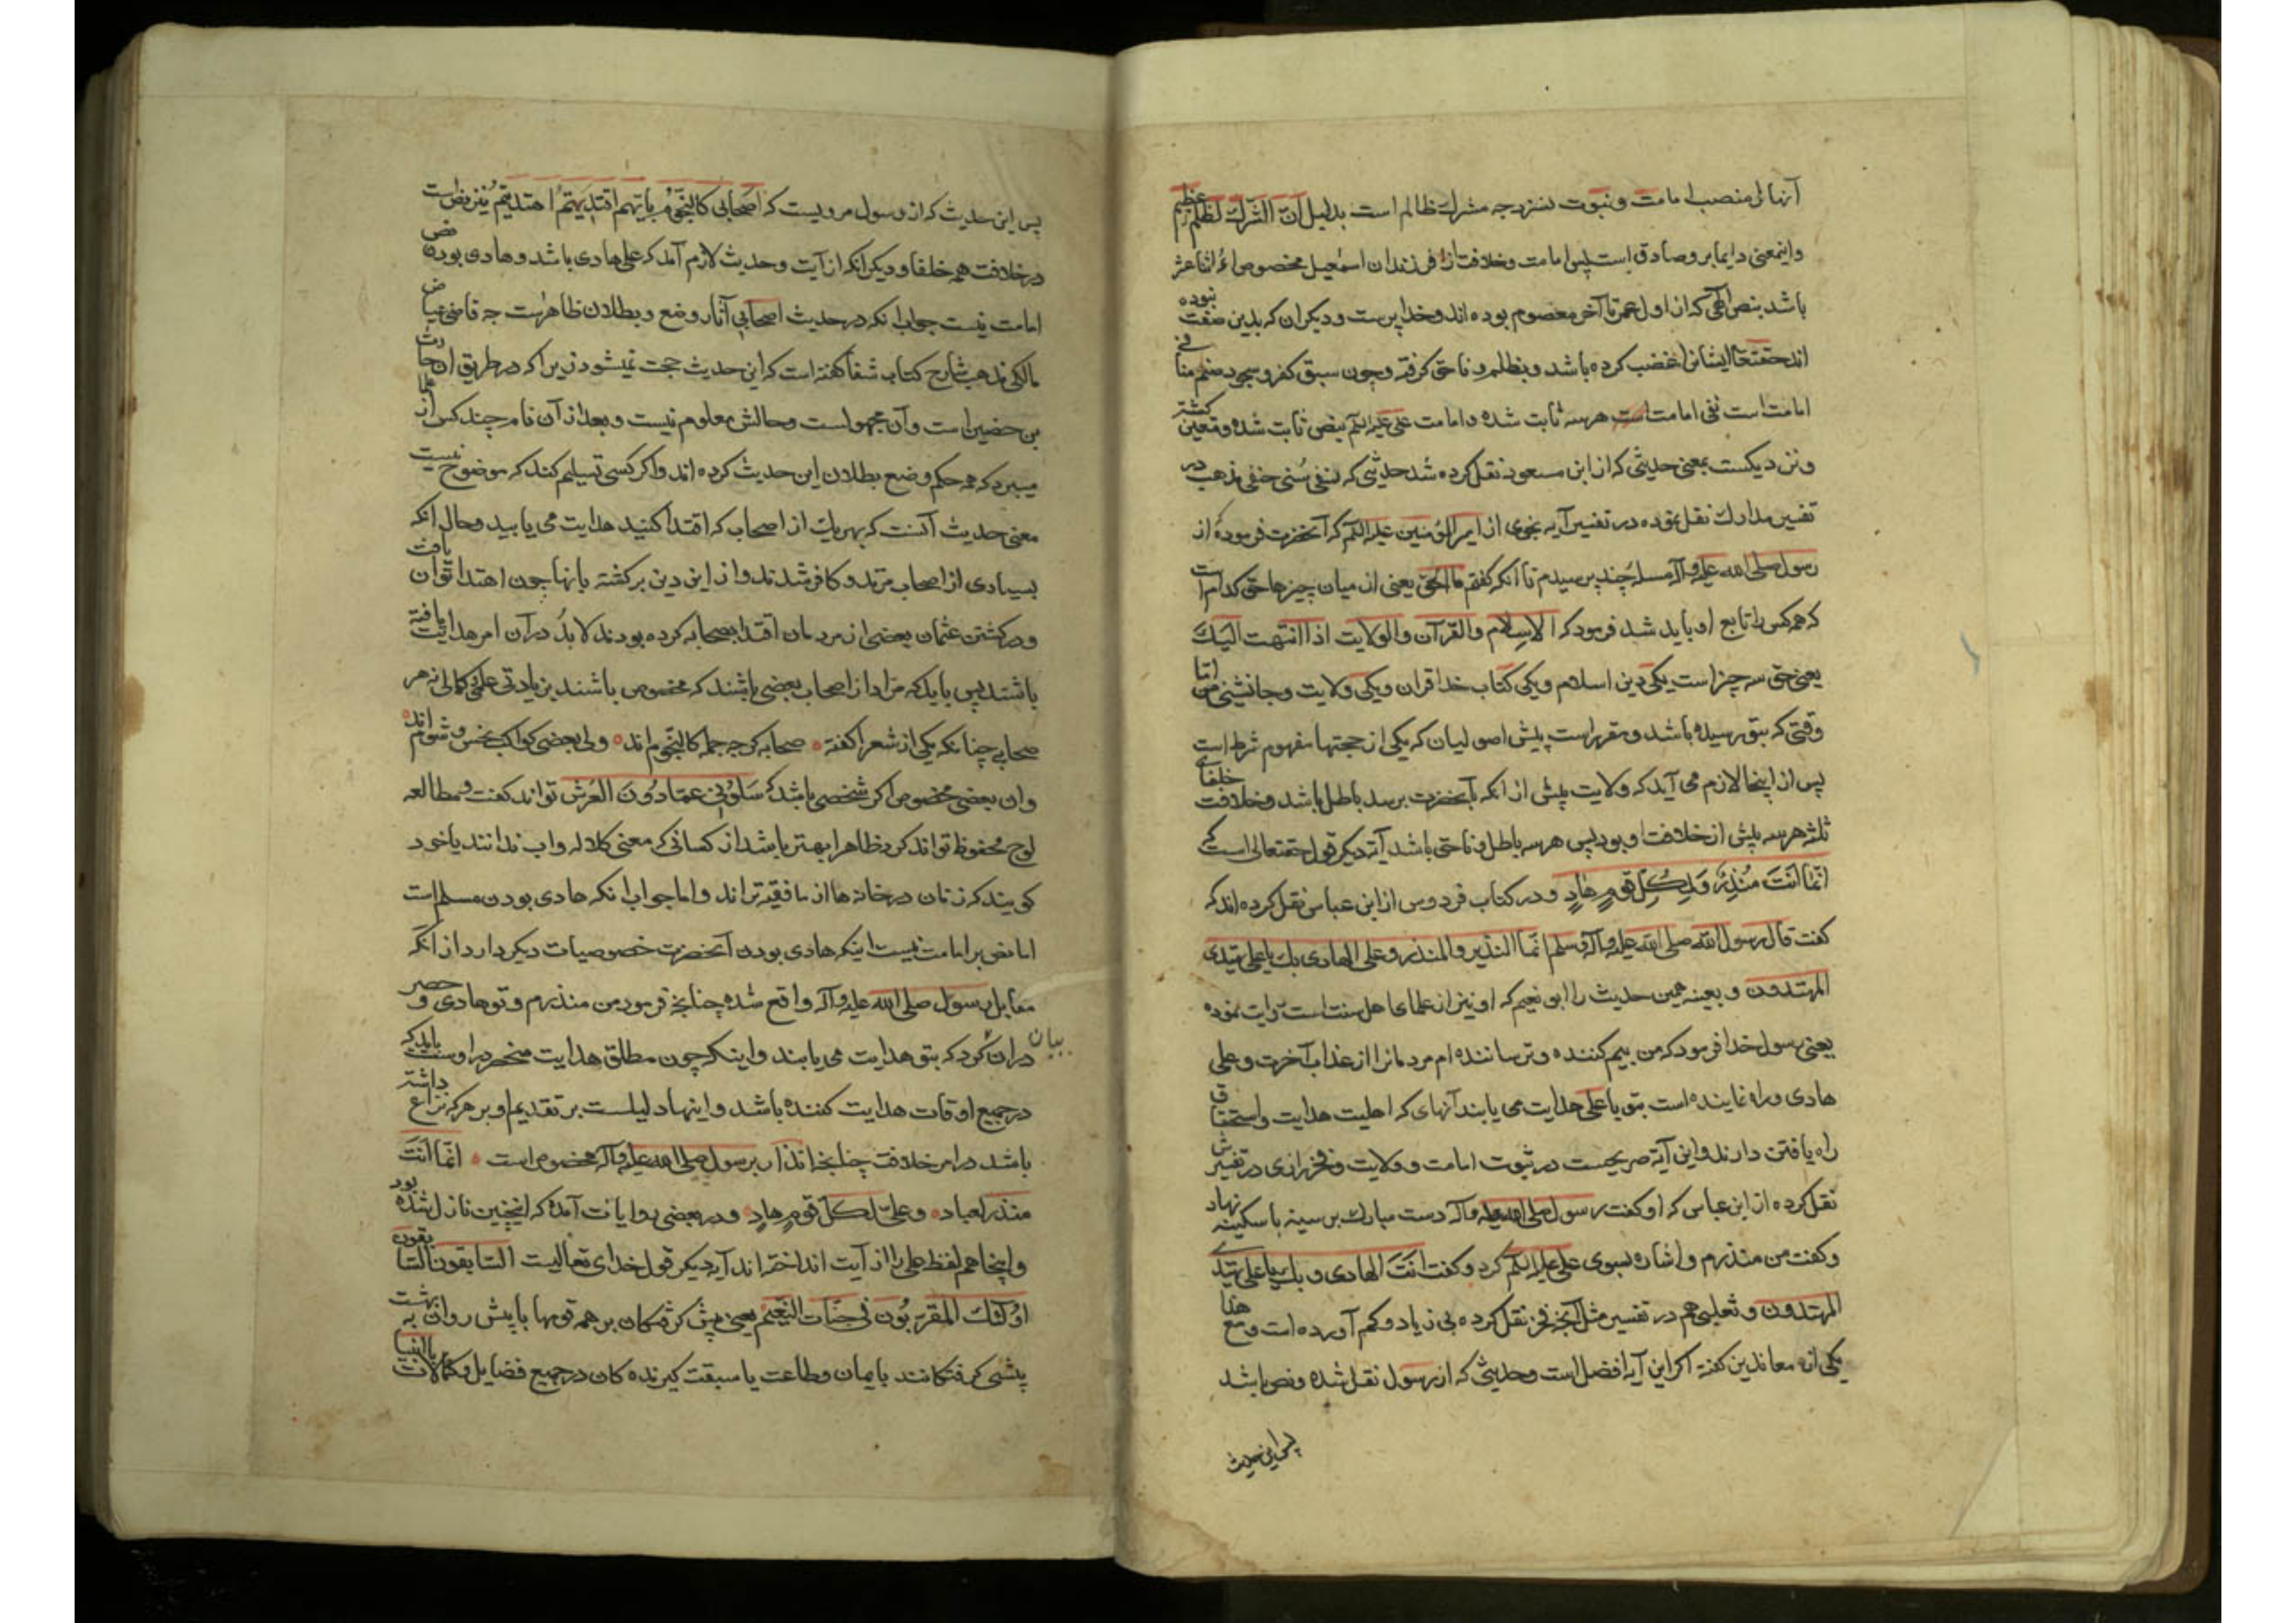 آنها را منصب امامت و نبوت نسزد چه مشرك ظالم است بدلیل انّ الشّرك لظلم عظیم
واینمعنی دایما برو صادق است پس امامت وخلافت از فرزندان اسمعیل مخصوص ائمه اثنا عشر
باشد بنص الهی که از اول عمر تا آخر معصوم بوده اند وخدا پرست ودیکران که بدین صفت نبوده
اند حقتعا ایشانرا غضب کرده باشد وبظلم و ناحق کرفته وچون سبق کفر و سجود صنم منافی
امامت است نفی امامت است هر سه ثابت شده وامامت علی علیه السلم بنص ثابت شده ومتعین کشته
ونزدیکست بمعنی حدیثی که از ابن مسعود نقل کرده شد حدیثی که نسفی سُنی حنفی مذهب در
تفسیر مدارك نقل نموده در تفسیر آیه نجوی از امیر المؤمنین علیه السلم که آنحضرت فرموده از
رسول صلی الله علیه وآله مسله چند پرسیدم تا آنکه کفتم ما الحق یعنی از میان چیزها حق کدام است
که همه کس را تابع او باید شد فرمود که الاسلام والقرآن والولایت اذا انتهت الیك
یعنی حق سه چیز است یکی دین اسلام ویکی کتاب خدا قران ویکی ولایت وجانشینی من اما
وقتی که بتو رسیده باشد ومقرر است پیش اصولیان که یکی از حجتها مفهوم شرط است
پس از اینجا لازم می آید که ولایت پیش از انکه بآنحضرت برسد باطل باشد وخلافت خلفای
ثلثه هر سه پیش از خلافت او بود پس هر سه باطل وناحق باشد آیه دیکر قول حقتعالی است که
انّما انت منذرٌ ولِکُلِّ قومٍ هادٍ ودر کتاب فردوس از ابن عباس نقل کرده اند که
کفت قال رسول الله صلی الله علیه وآله وسلم انّما النذیر والمنذر وعلی الهادی بك یا علی یهتدی
المهتدون وبعینه همین حدیث را ابو نعیم که او نیز از علمای اهل سنت است روایت نموده
یعنی رسول خدا فرمود که من بیم کننده وترساننده ام مردمانرا از عذاب آخرت وعلی
هادی وراه نماینده است بتو یا علی هدایت می یابند آنهای که اهلیت هدایت واستحقاق
راه یافتن دارند واین آیه صریحست در ثبوت امامت وولایت وفخر رازی در تفسیرش
نقل کرده از ابن عباس که او کفت رسول صلی الله علیه وآله دست مبارك بر سینه با سکینه نهاد
وکفت من منذرم واشاره بسوی علی علیه السلم کرد وکفت انت الهادی وبك یا علی یهتدی
المهتدون وثعلبی هم در تفسیر مثل آنچه فخر نقل کرده بی زیاد وکم آورده است ومع هذا
یکی از معاندین کفته اکر این آیه افضل است وحدیثی که از رسول نقل شده ونص باشد
پس این حدیث
پس این حدیث که از رسول مرویست که اصحابی کالنّجوم بایّهم اقتدیتم اهتدیتم نیز نص است
در خلافت همه خلفا ودیکر انکه از آیت وحدیث لازم آمد که علی هادی باشد وهادی بودن نص
امامت نیست جواب انکه در حدیث اصحابی آثار وضع وبطلان ظاهرست چه قاضی عیاض
مالکی مذهب شارح کتاب شفا کفته است که این حدیث حجت نمیشود زیرا که در طریق ان حارث
بن حضین است وآن مجهولست وحالش معلوم نیست وبعد از آن نام چند کس از علما
میبرد که همه حکم وضع بطلان این حدیث کرده اند واکر کسی تسلیم کند که موضوع نیست
معنی حدیث آنست که بهریك از اصحاب که اقتدا کنید هدایت می یابید وحال انکه
بسیاری از اصحاب مرتد وکافر شدند واز این دین برکشته بانها چون اهتدا توان یافت
ودر کشتن عثمان بعضی از مردمان اقتدا بصحابه کرده بودند لابدّ در آن امر هدایت یافته
باشند پس باید که مراد از اصحاب بعضی باشند که مخصوص باشند بزیادتی علم وکمالی نه هر
صحابی چنانکه یکی از شعرا کفته ٭ صحابه کرچه جمله کالنّجوم اند ٭ ولی بعضی کواکب نحس وشوم اند ٭
وان بعضی مخصوص اکر شخصی باشد که سلونی عمّا دون العرش تواند کفت ومطالعه
لوح محفوظ تواند کرد ظاهرا بهتر باشد از کسانی که معنی کلاله واب ندانند یا خود
کویند که زنان در خانه ها از ما فقیه تر اند واما جواب انکه هادی بودن مسلم است
اما نص بر امامت نیست اینکه هادی بودن آنحضرت خصوصیات دیکر دارد از انکه
مقابل رسول صلی الله علیه وآله واقع شده چنانچه فرمود من منذرم وتو هادی وحصر
بیان
دران کرد که بتو هدایت می یابند واینکه چون مطلق هدایت منحصر در اوست باید که
در جمیع اوقات هدایت کننده باشد واینها دلیلست بر تقدیم او بر هر که نزاع داشته
باشد در امر خلافت چنانچه انذار برسول صلی الله علیه وآله مخصوص است ٭ انّما انت
منذر لعباد ٭ وعلیّ لکلّ قومٍ هادٍ ٭ ودر بعضی روایات آمده که اینچنین نازل شده بود
واینجا هم لفظ علی را از آیت انداخته اند آیه دیکر قول خدای تعالیست السّابقون السّابقون
اولئك المقرّبون فی جنّات النّعیم یعنی پیش کرفتکان بر همه قومها یا پیش روان به بهشت
پیشی کرفتکانند بایمان وطاعت یا سبقت کیرنده کان در جمیع فضایل وکمالات یا انبیا